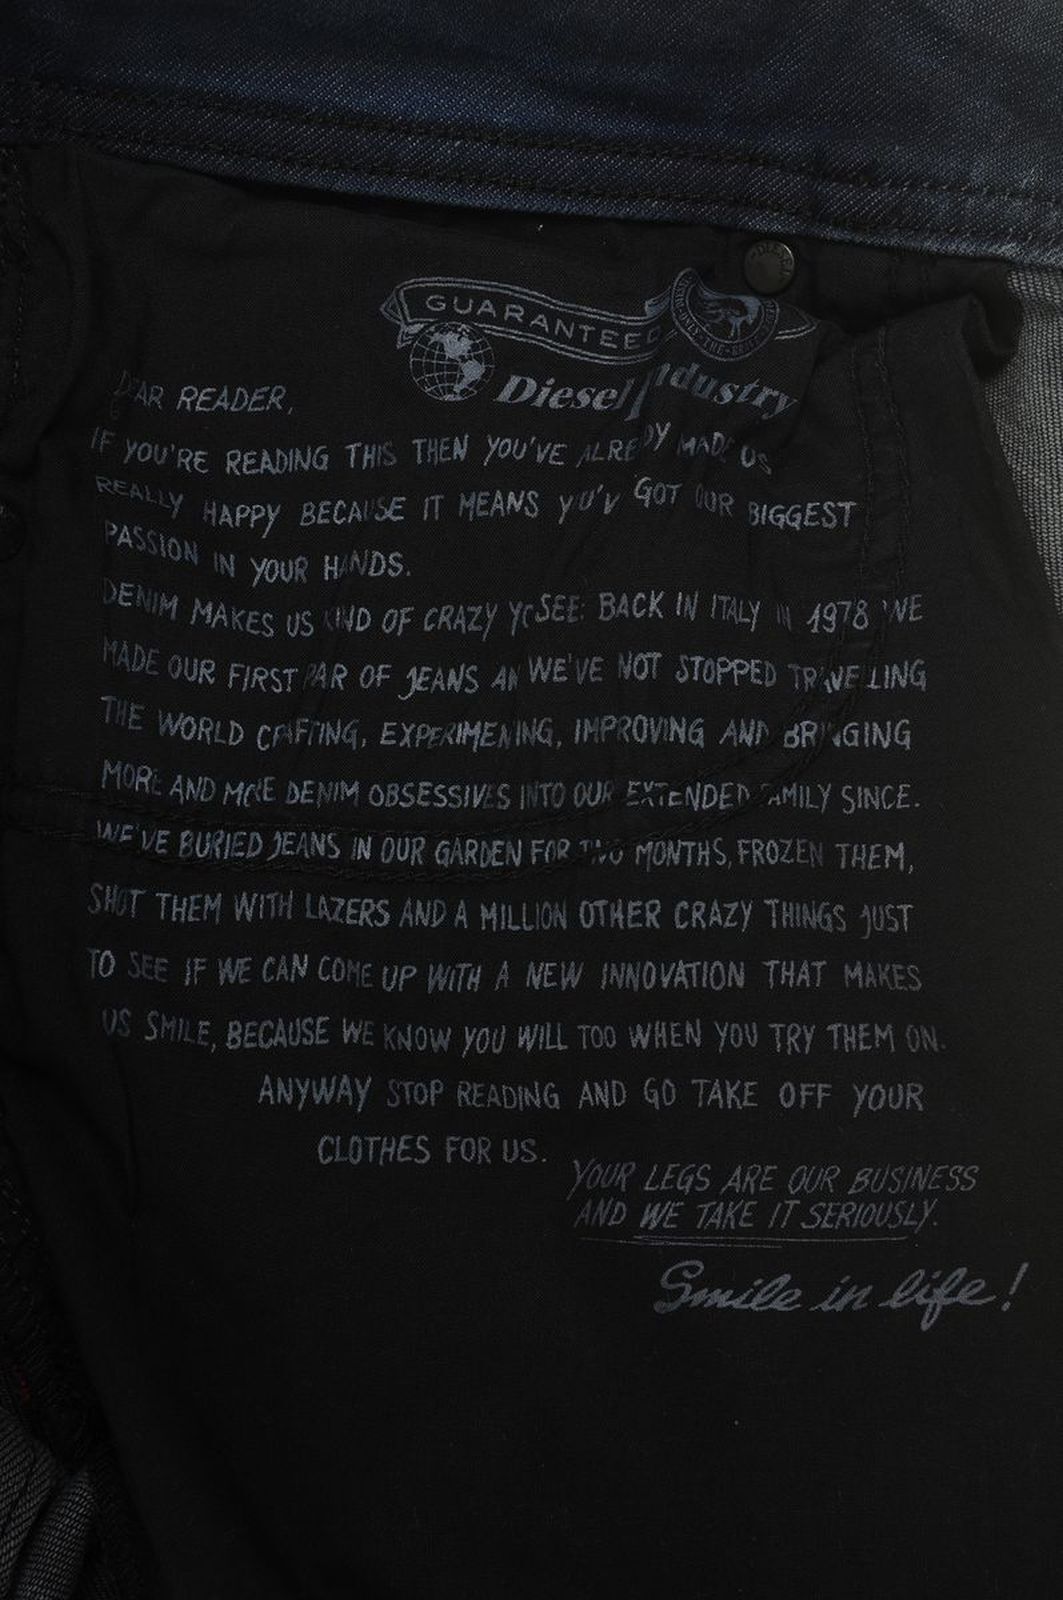 GUARANTEED
Diesel Industry
DEAR READER,
IF YOU'RE READING THIS THEN YOU'VE ALREADY MADE US
REALLY HAPPY BECAUSE IT MEANS YOU'V GOT OUR BIGGEST
PASSION IN YOUR HANDS.
DENIM MAKES US KIND OF CRAZY YOU SEE: BACK IN ITALY IN 1978 WE
MADE OUR FIRST PAIR OF JEANS AN WE'VE NOT STOPPED TRAVELLING
THE WORLD CRAFTING, EXPERIMENING, IMPROVING AND BRINGING
MORE AND MORE DENIM OBSESSIVES INTO OUR EXTENDED FAMILY SINCE.
WE'VE BURIED JEANS IN OUR GARDEN FOR TWO MONTHS, FROZEN THEM,
SHOT THEM WITH LAZERS AND A MILLION OTHER CRAZY THINGS JUST
TO SEE IF WE CAN COME UP WITH A NEW INNOVATION THAT MAKES
US SMILE, BECAUSE WE KNOW YOU WILL TOO WHEN YOU TRY THEM ON.
ANYWAY STOP READING AND GO TAKE OFF YOUR
CLOTHES FOR US.
YOUR LEGS ARE OUR BUSINESS
AND WE TAKE IT SERIOUSLY.
Smile in life!